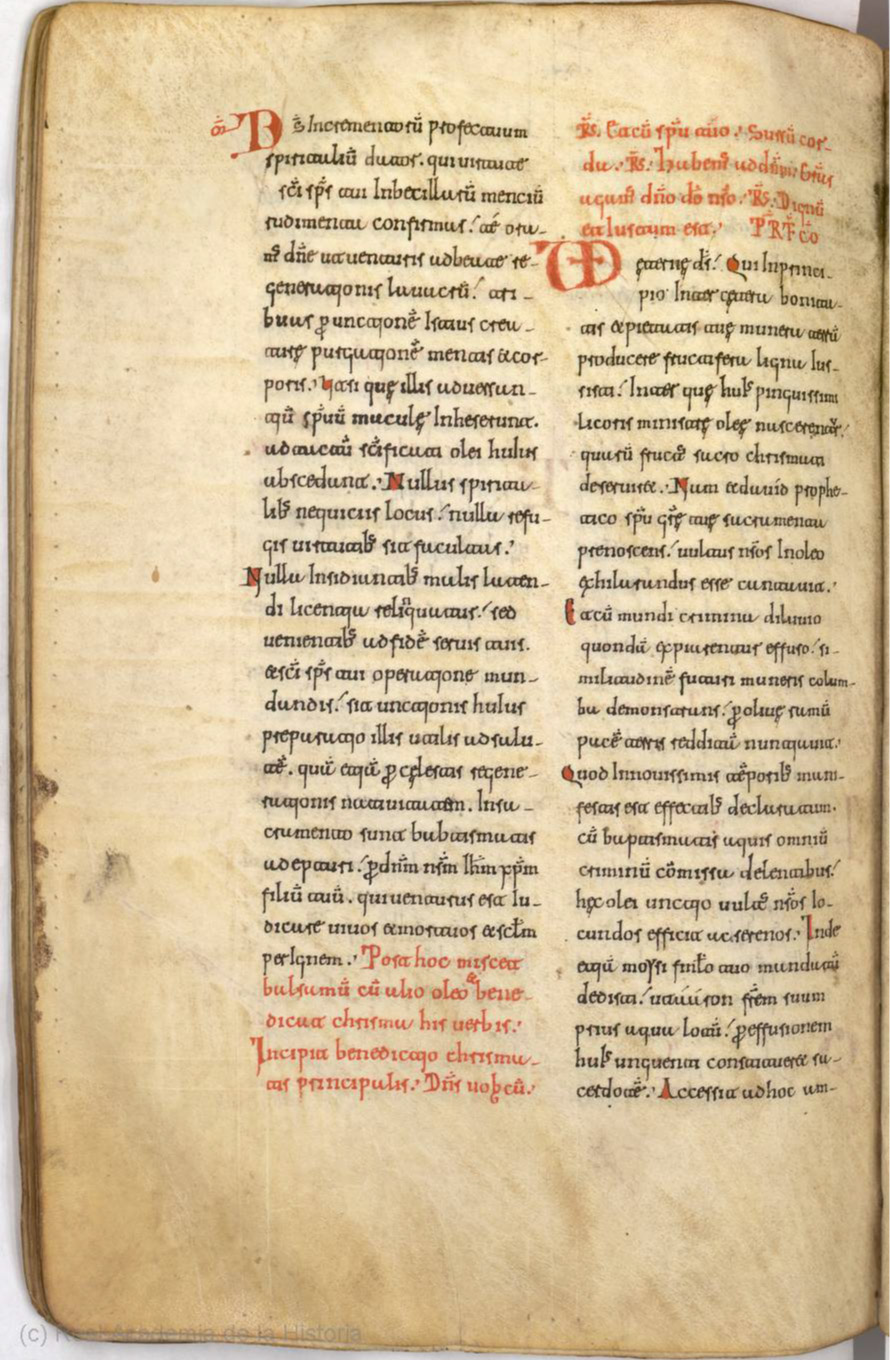 oŕ Ds̄ Incrementorū profectuum
spiritaliū dator. qui uirtute
sc̄i sp̄s tui Inbecillarū menciū
rudimenta confirmas. te ora-
ms dn̄e ut uenturis ad beate re-
generationis lauacrū. tri-
buas p unctionē Istius crea-
ture purgationē mentis &cor-
poris. Vt si que illis aduersan-
tiū sp̄uū macule Inheserunt.
ad tactū sc̄ificati olei huius
abscedunt. Nullus spiritua-
lib nequiciis locus. nulla refu-
gis uirtutib sit facultas.
Nulla Insidiantib malis laten-
di licentia reliq̄uatur. sed
uenientib ad fidē seruis tuis.
&sc̄i sp̄s tui operatione mun-
dandis. sit unctionis huius
preparatio illis utilis ad salu-
tē. quā etiā p celestis regene-
rationis natiuitatem. Insa-
cramento sunt babtismatis
adepturi. p dn̄m nsm Ihm xpm
filiū tuū. qui uenturus est Iu-
dicare uiuos &mortuos &sclm
perIgnem. Post hoc miscet
balsamū cū alio oleo & bene-
dicat chrisma his uerbis.
Incipit benedictio chrisma-
tis principalis. Dn̄s uobcū.
Rs. Etcū sp̄u tuo. Sursū cor-
da. Rs. Habems ad dn̄m. Gr̄as
agams dn̄o do nso. Rs. Dignū
etIustum est. PRT. co
VD eterne ds. Qui Inprinci-
pio Inter cetera bonita-
tis &pietatis tue munera terrā
producere fructifera ligna Ius-
sisti. Inter que huis pinguissimi
licoris ministre olee nascerentr.
quarū fructs sacro chrismati
deseruiret. Nam &dauid prophe-
tico sp̄u grē tue sacramenta
prenoscens. uultus nsos Inoleo
exhilarandos esse cantauit.
Etcū mundi crimina diluuio
quondā expiarentur effuso. si-
militudinē futuri muneris colum-
ba demonstrans. p oliue ramū
pacē terris redditā nunciauit.
Quod Innouissimis tēporib mani-
festis est effectib declaratum.
cū baptismatis aquis omniū
criminū cōmissa delentibus.
hec olei unctio uults nsos Io-
cundos efficit ac serenos. Inde
etiā moysi fmlo tuo mandatū
dedisti. ut aaron frēm suum
prius aqua lotū. p effusionem
huis unguenti constitueret sa-
cerdotē. Accessit adhoc am-